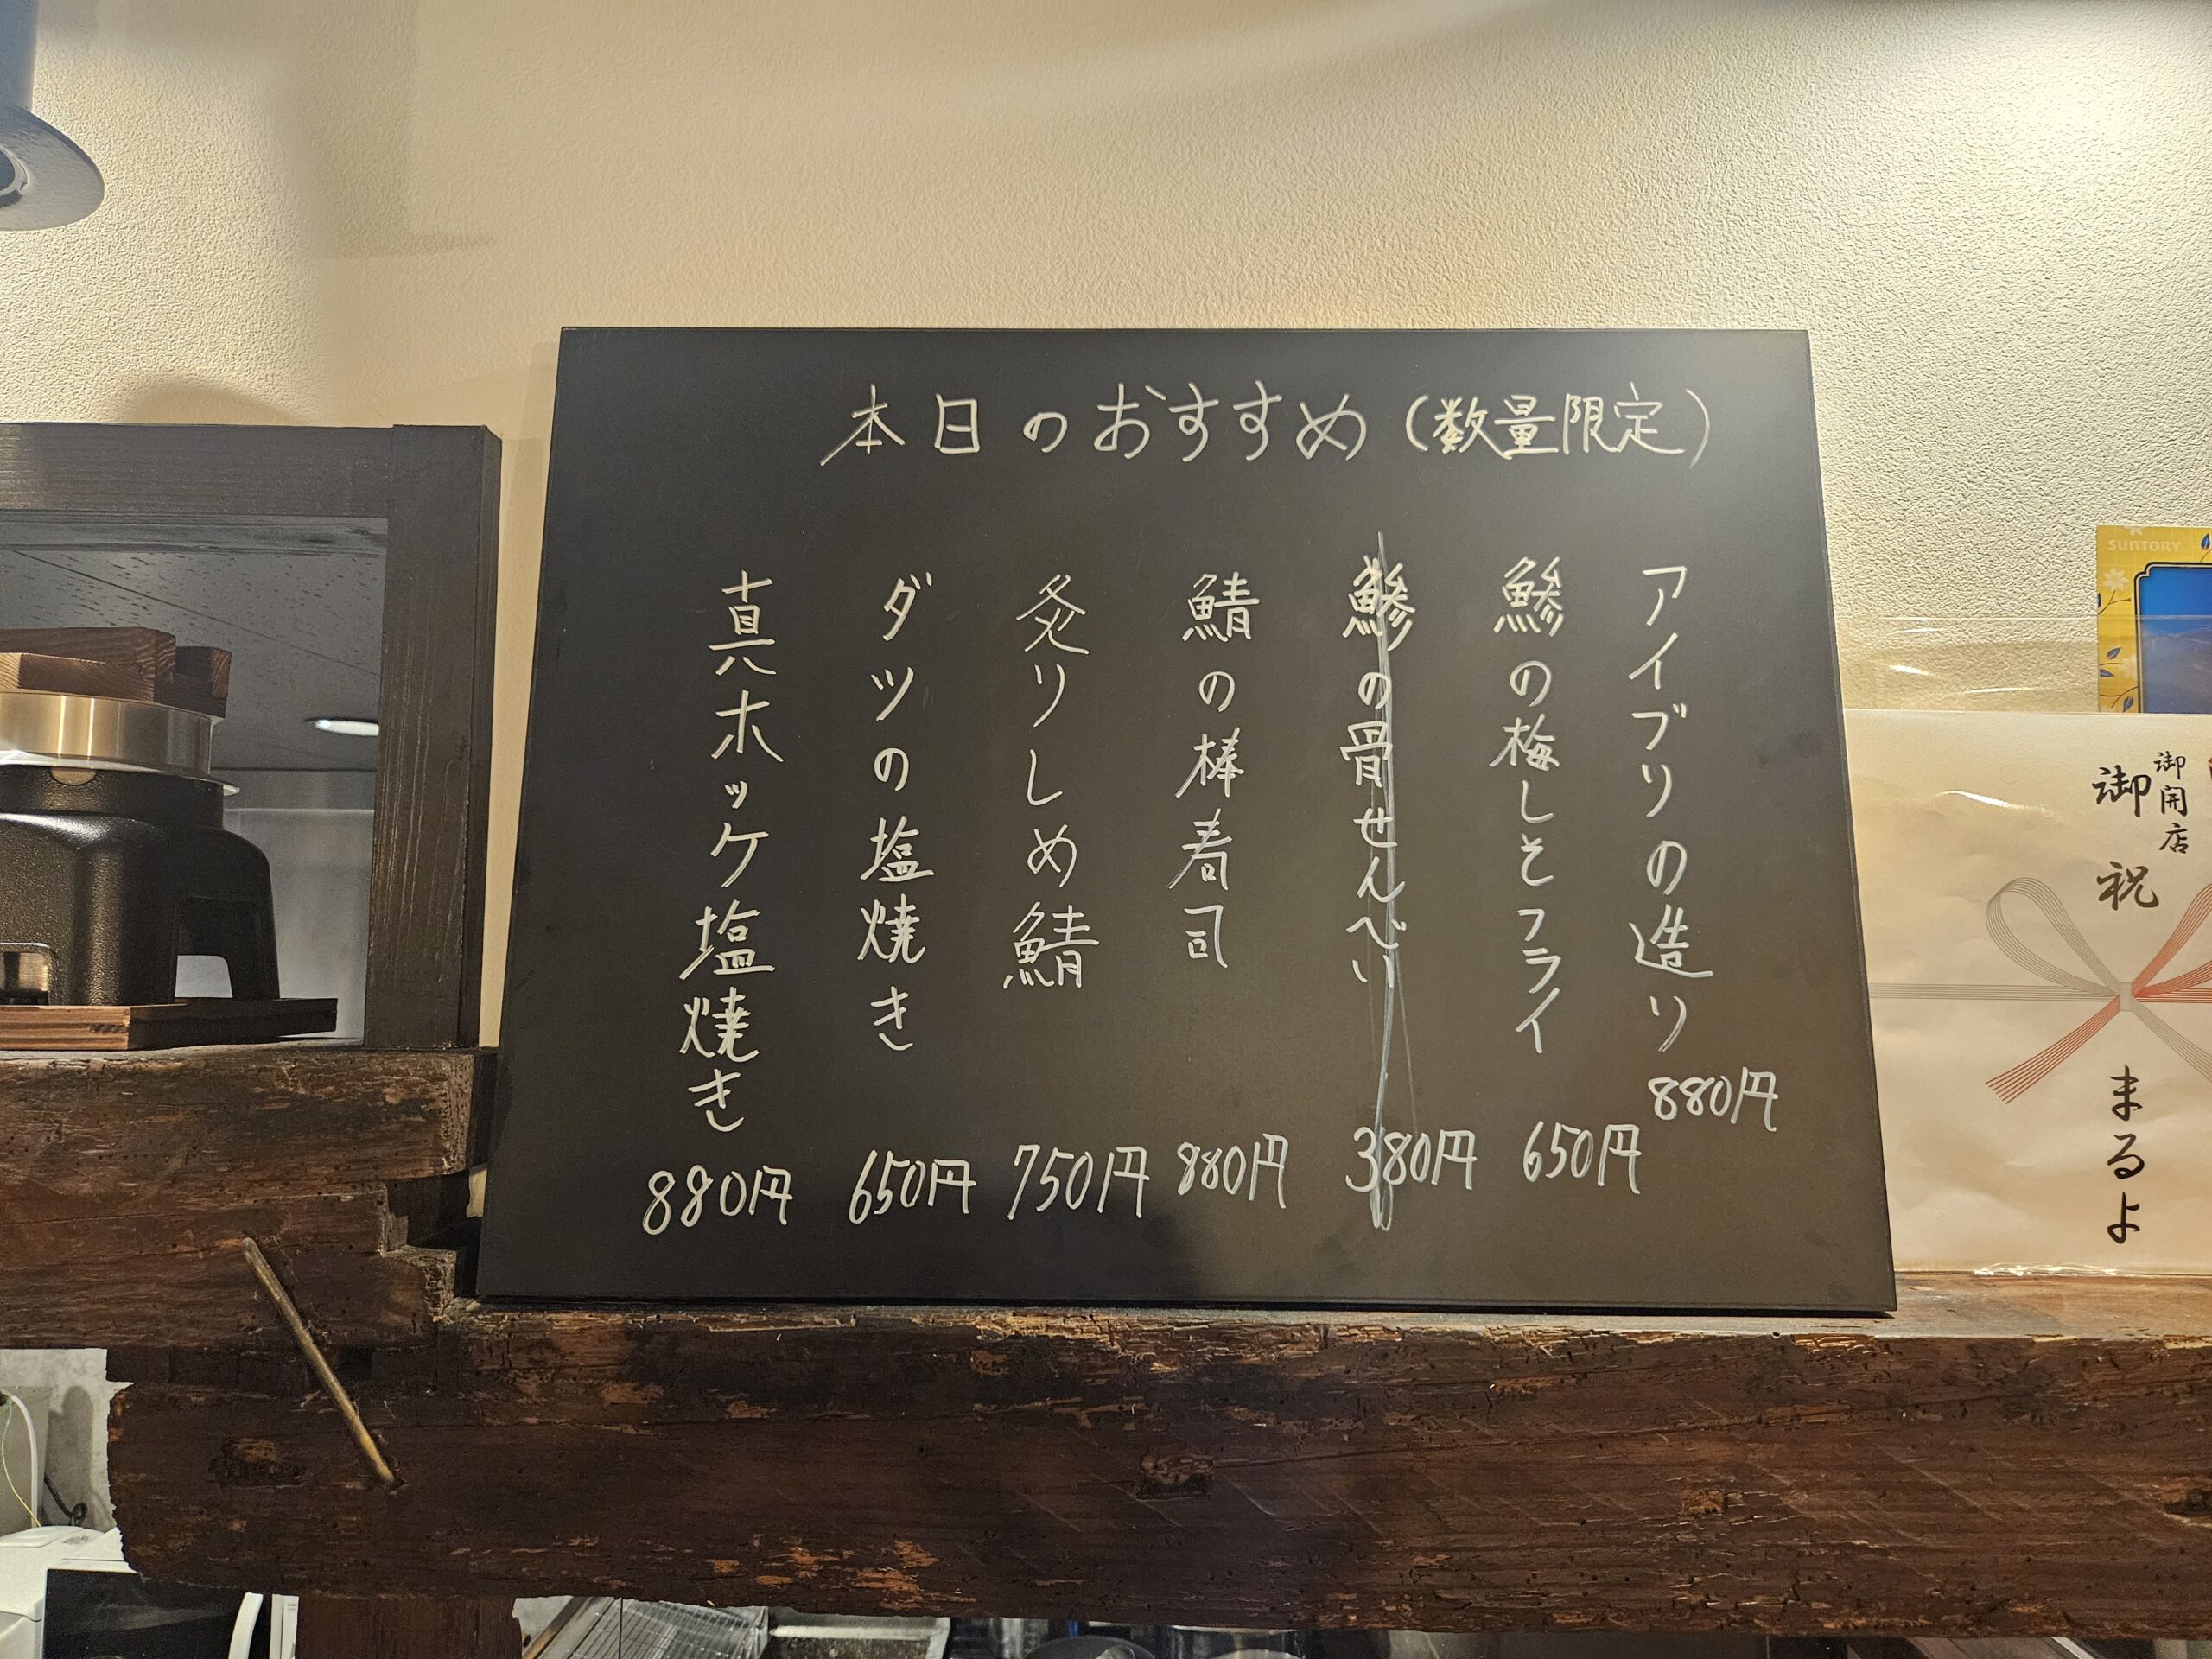 本日のおすすめ(数量限定)
アイブリの造り
880円
鯵の梅しそフライ
650円
鯵の骨せんべい
380円
鯖の棒寿司
880円
炙りしめ鯖
750円
ダツの塩焼き
650円
真ホッケ塩焼き
880円
SUNTORY
御開店
御祝
まるよ